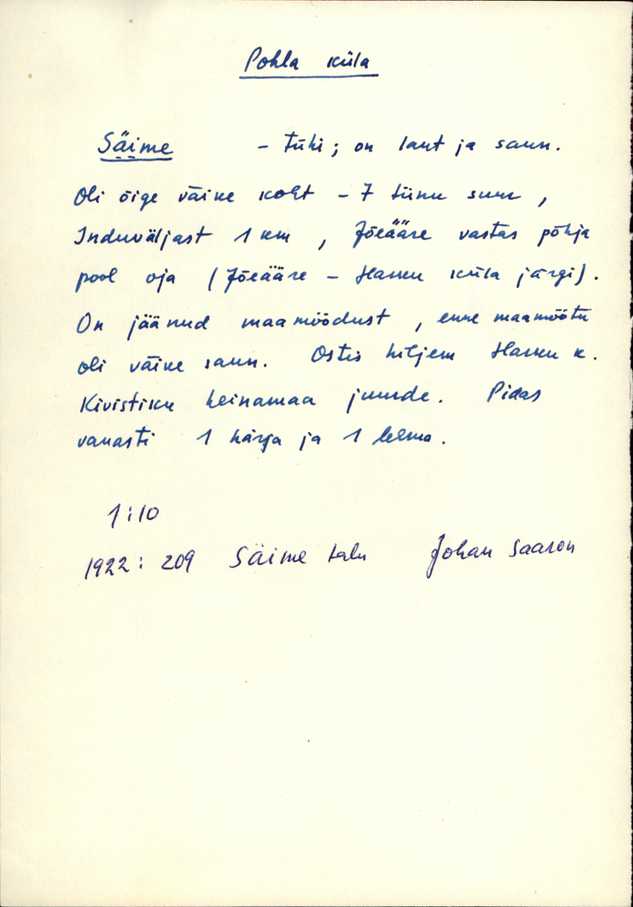 Pohla küla
Säime - tühi; on laut ja saun.
Oli õige väike koht - 7 tiinu suur,
Induväljast 1 km, Jõeääre vastas põhja
pool oja (Jõeääre - Harku küla järgi).
On jäänud maamõõdust, enne maamõõtu
oli väike saun. Ostis hiljem Harku k.
Kivistiku heinamaa juurde. Pidas
vanasti 1 härja ja 1 lehma.
1:10
1922: 209 Säime talu Johan Saaron